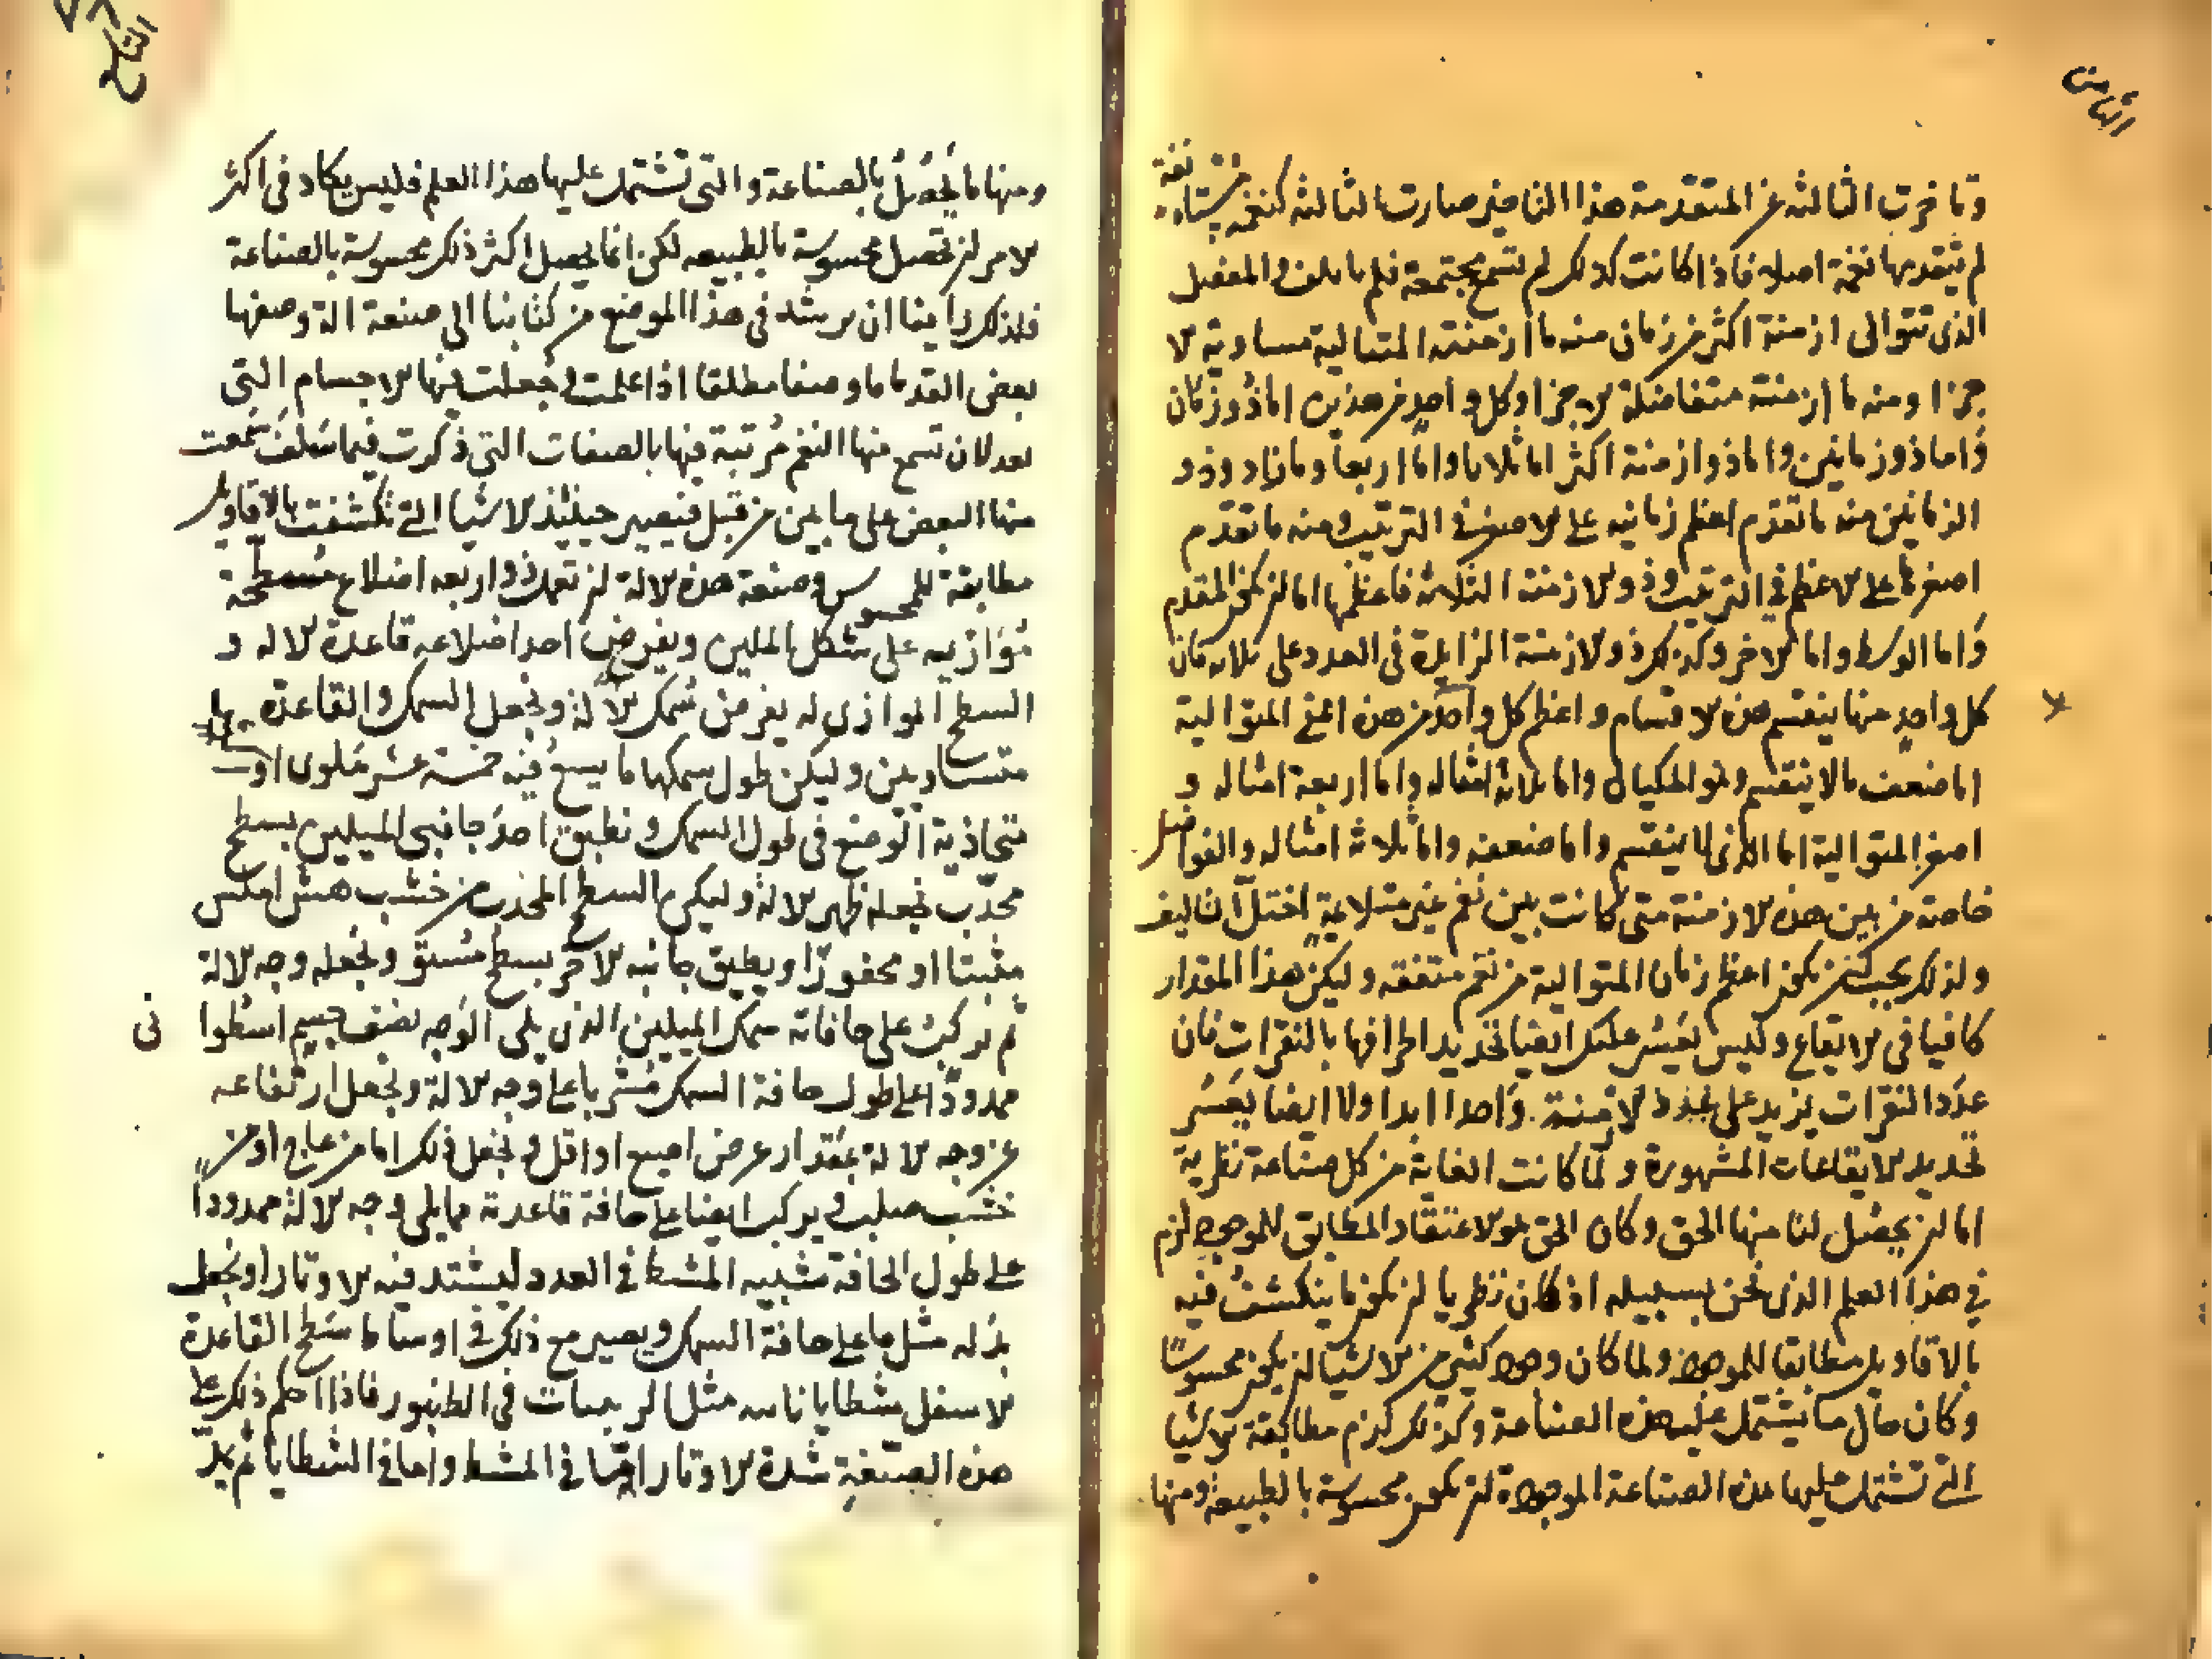 الثامن
وتاخرت الثالثة عن المتقدمة هذا التاخير صارت الثالثة كنغمة مستانفة
لم يتقدمها نغمة اصلا فاذا كانت كذلك لم تسمع مجتمعة فلم ياتلف والمفصل
الذى تتوالى ازمنة اكثر من زمان منه ما ازمنته المتتالية متساوية الا
جزا ومنه ما ازمنته متفاضلة الاجزا وكل واحد من هذين اما ذو زمان
واما ذو زمانين واما ذو ازمنة اكثر اما ثلاثا واما اربعا وما زاد وذو
الزمانين منه ما تقدم اعظم زمانيه على الاصغر في الترتيب ومنه ما تقدم
اصغرهما على الاعظم في الترتيب وذو الازمنة الثلاثة فاعظمها اما ان يكون المقدم
واما الاوسط واما الاخر وكذلك ذو الازمنة الزايدة في العدد على ثلاثة فان
كل واحد منها ينقسم هذه الاقسام واعظم كل واحد من هذه اعنى المتوالية
اما ضعف ما لا ينقسم وهو المكيال واما ثلاثة امثاله واما اربعة امثاله و
اصغر المتوالية اما الذى لا ينقسم واما ضعفه واما ثلاثة امثاله والفواصل
خاصة من بين هذه الازمنة متى كانت بين نغم غير متلايمة اختل التاليف
ولذلك يجب ان يكون اعظم زمان المتوالية من نغم متفقه وليكن هذا المقدار
كافيا في الايقاع وليس يعسر عليك ايضا تحديد اطرافها بالنقرات فان
عدد النقرات يزيد على عدد الازمنة واحدا ابدا ولا ايضا يعسر
تحديد الايقاعات المشهورة ولما كانت الغاية من كل صناعة نظرية
اما ان يحصل لنا منها الحق وكان الحق هو الاعتقاد المطابق للموجود لزم
في هذا العلم الذى نحن بسبيله اذ كان نظريا ان يكون ما ينكشف فيه
بالاقاويل مطابقا للموجود ولما كان وجود كثير من الاشيا ان يكون محسوسا
وكان حال ما تشتمل عليه هذه الصناعة كذلك لزم مطابقة الاشيا
التي تشتمل عليها هذه الصناعة الموجودة ان تكون محسوسة بالطبيعة ومنها
التاسع
ومنها ما يحصل بالصناعة والتى تشتمل عليها هذا العلم فليس يكاد في اكثر
الامر ان تحصل محسوسة بالطبيعه لكن انما يحصل اكثر ذلك محسوسة بالصناعة
فلذلك راينا ان نرشد في هذا الموضع من كتابنا الى صنعة الة وصفها
بعض القدما ما وصفا مطلقا اذا عملت وجعلت فيها الاجسام التى
تعد لان تسمع منها النغم مرتبة فيها بالصفات التى ذكرت فيما سلف سمعت
منها البعض على ما بين من قبل فتصير حينئذ الاشيا التي تكشفت بالاقاويل
مطابقة للمحسوس وصنعة هذه الالة ان تعمل ذو اربعه اضلاع مسطحة
متوازيه على شكل الملبن ويفرض احد اضلاعه قاعدة الاله و
السطح الموازى له يفرض سمك الالة ونجعل السمك والقاعدة
متساويين وليكن طول سمكها ما يسع فيه خمسة عشر ملوى او
متحاذية الوضع في طول السمك ونطبق احد جانبى الملبن بسطح
محدب نجعله ظهر الالة وليكن السطح المحدب من خشب هش املس
مثبتا او محفورا ويطبق جانبه الاخر بسطح مستو ونجعله وجه الالة
ثم نركب على حافاته سمك الملبن الذى يلى الوجه نصف جسم اسطوا نى
ممدودا على طول حافة السمك مشرفا على وجه الالة ونجعل ارتفاعه
عن وجه الالة بمقدار عرض اصبع او اقل ونجعل ذلك اما من عاج او من
خشب صلب ويركب ايضا على حافة قاعدته مما يلى وجه الالة ممدودا
على طول الحافة شبيه المشط في العدد ليشتد فيه الاوتار او نجعل
بدله مثل ما على حافة السمك ويصير مع ذلك في اوساط سطح القاعدة
الاسفل شظايا ناتئه مثل الزبيبات في الطنبور فاذا احكم ذلك على
هذه الصنعة شدة الاوتار اما في المشط واما في الشظايا ثم يمد